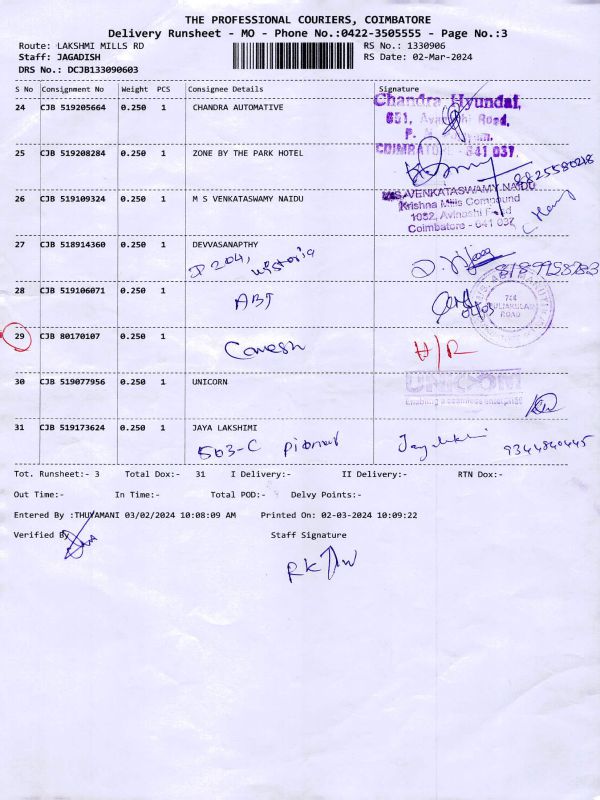 THE PROFESSIONAL COURIERS, COIMBATORE
Delivery Runsheet - MO - Phone No.:0422-3505555 - Page No.:3
Route: LAKSHMI MILLS RD RS No.: 1330906
Staff: JAGADISH RS Date: 02-Mar-2024
DRS No.: DCJB133090603
S No Consignment No Weight PCS Consignee Details Signature
24 CJB 519205664 0.250 1 CHANDRA AUTOMATIVE
Chandra Hyundai,
651, Road,
COIMBATORE - 641 037.
25 CJB 519208284 0.250 1 ZONE BY THE PARK HOTEL
26 CJB 519109324 0.250 1 M S VENKATASWAMY NAIDU
M/S.VENKATASWAMY NAIDU
Krishna Mills Compound
1052, Avinashi Road
Coimbatore - 641 037
27 CJB 518914360 0.250 1 DEVVASANAPTHY
28 CJB 519106071 0.250 1 ABT
744
PULIAKULAM
ROAD
29 CJB 80170107 0.250 1 Ganesh H/R
30 CJB 519077956 0.250 1 UNICORN
31 CJB 519173624 0.250 1 JAYA LAKSHIMI
503-C 9344840445
Tot. Runsheet:- 3 Total Dox:- 31 I Delivery:- II Delivery:- RTN Dox:-
Out Time:- In Time:- Total POD:- Delvy Points:-
Entered By :THUYAMANI 03/02/2024 10:08:09 AM Printed On: 02-03-2024 10:09:22
Verified By Staff Signature